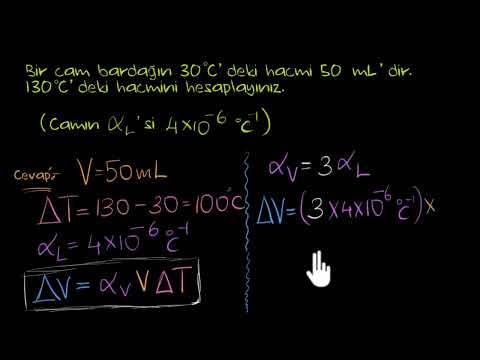 Bir cam bardağın 30°C'deki hacmi 50 mL'dir.
130°C'deki hacmini hesaplayınız.
(Camın α_L'si 4×10⁻⁶ °C⁻¹)
Cevap:- V=50mL
ΔT=130-30=100°C
α_L=4×10⁻⁶ °C⁻¹
ΔV=α_V V ΔT
α_V=3α_L
ΔV=(3×4×10⁻⁶ °C⁻¹)×